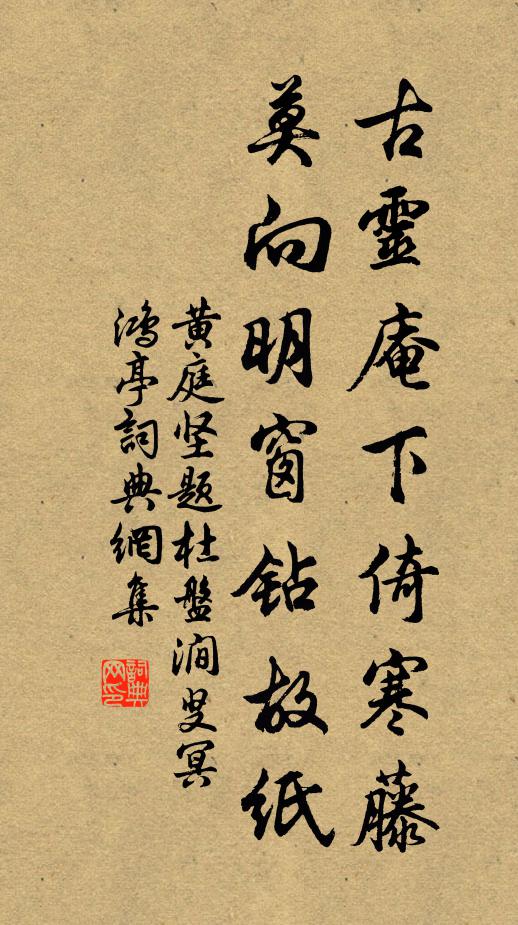 古靈庵下倚寒藤
莫向明窗钻故紙
黄庭坚题杜盤澗叟冥
鸿亭詞典網集
詞典
网印